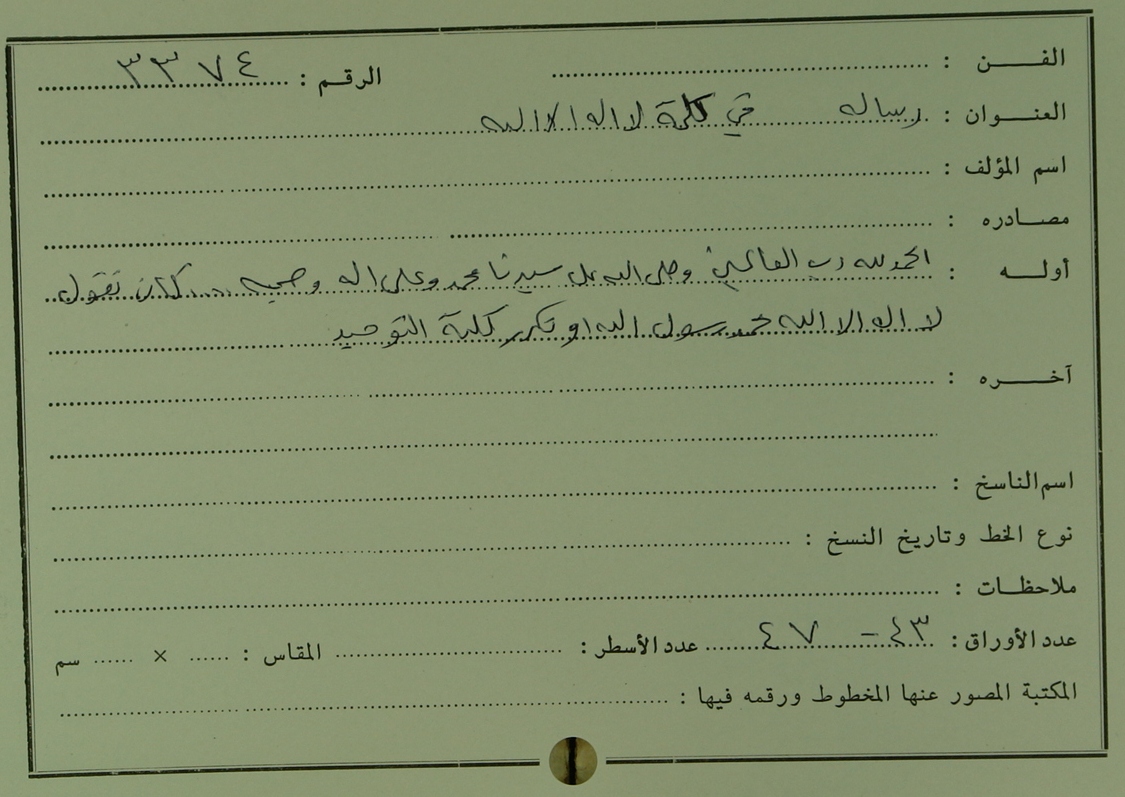 الفن : الرقم : ٣٣٧٤
العنوان : رساله في كلمة لا اله الا الله
اسم المؤلف :
مصادره :
أوله : الحمد لله رب العالمين وصلى الله على سيدنا محمد وعلى اله وصحبه .... كان تقول
لا اله الا الله محمد رسول الله او تكرر كلمة التوحيد
آخره :
اسم الناسخ :
نوع الخط وتاريخ النسخ :
ملاحظات :
عدد الأوراق : ٤٣ - ٤٧ عدد الأسطر : المقاس : × سم
المكتبة المصور عنها المخطوط ورقمه فيها :